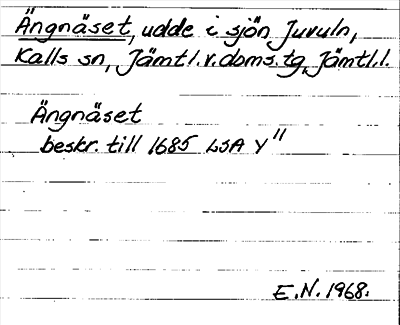 Ängnäset, udde i sjön Juvuln,
Kalls sn, Jämtl.v.doms.tg, Jämtl.l.
Ängnäset
beskr. till 1685 LSA Y"
E.N. 1968.